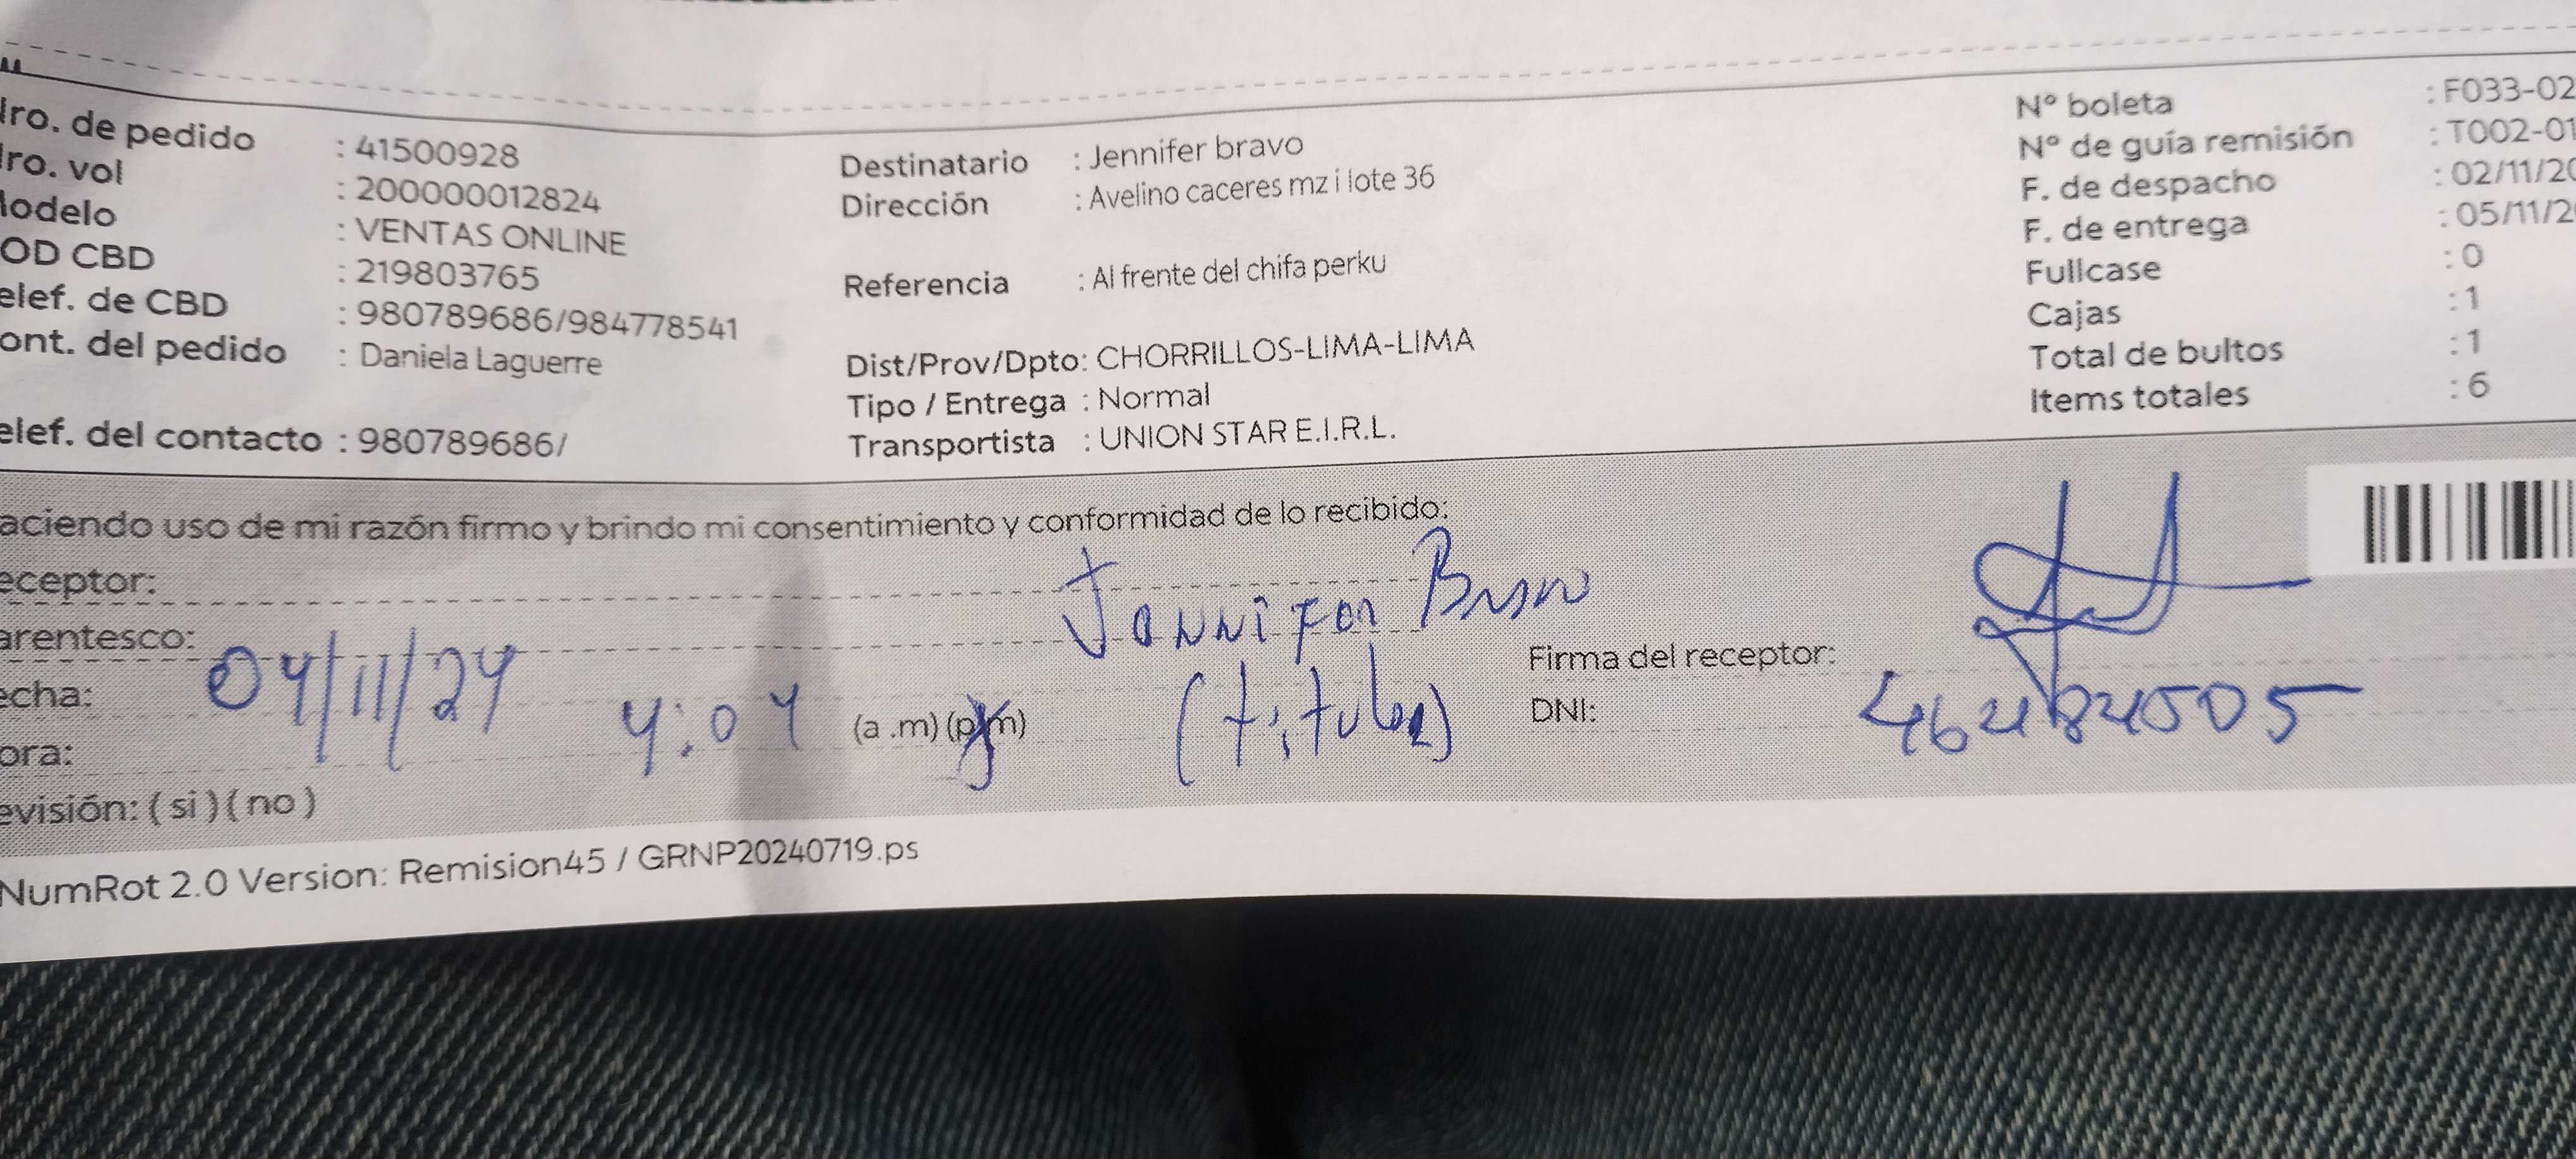 Nro. de pedido : 41500928
Nro. vol : 200000012824
Modelo : VENTAS ONLINE
COD CBD : 219803765
Telef. de CBD : 980789686/984778541
Cont. del pedido : Daniela Laguerre
Telef. del contacto : 980789686/
Destinatario : Jennifer bravo
Dirección : Avelino caceres mz i lote 36
Referencia : Al frente del chifa perku
Dist/Prov/Dpto: CHORRILLOS-LIMA-LIMA
Tipo / Entrega : Normal
Transportista : UNION STAR E.I.R.L.
N° boleta : F033-02
N° de guía remisión : T002-01
F. de despacho : 02/11/20
F. de entrega : 05/11/2
Fullcase : 0
Cajas : 1
Total de bultos : 1
Items totales : 6
aciendo uso de mi razón firmo y brindo mi consentimiento y conformidad de lo recibido:
eceptor: Jennifer Bravo
arentesco: (titular)
echa: 04/11/24
ora: 4:04 (a .m) (p.m)
Firma del receptor:
DNI:
evisión: ( si ) ( no )
NumRot 2.0 Version: Remision45 / GRNP20240719.ps